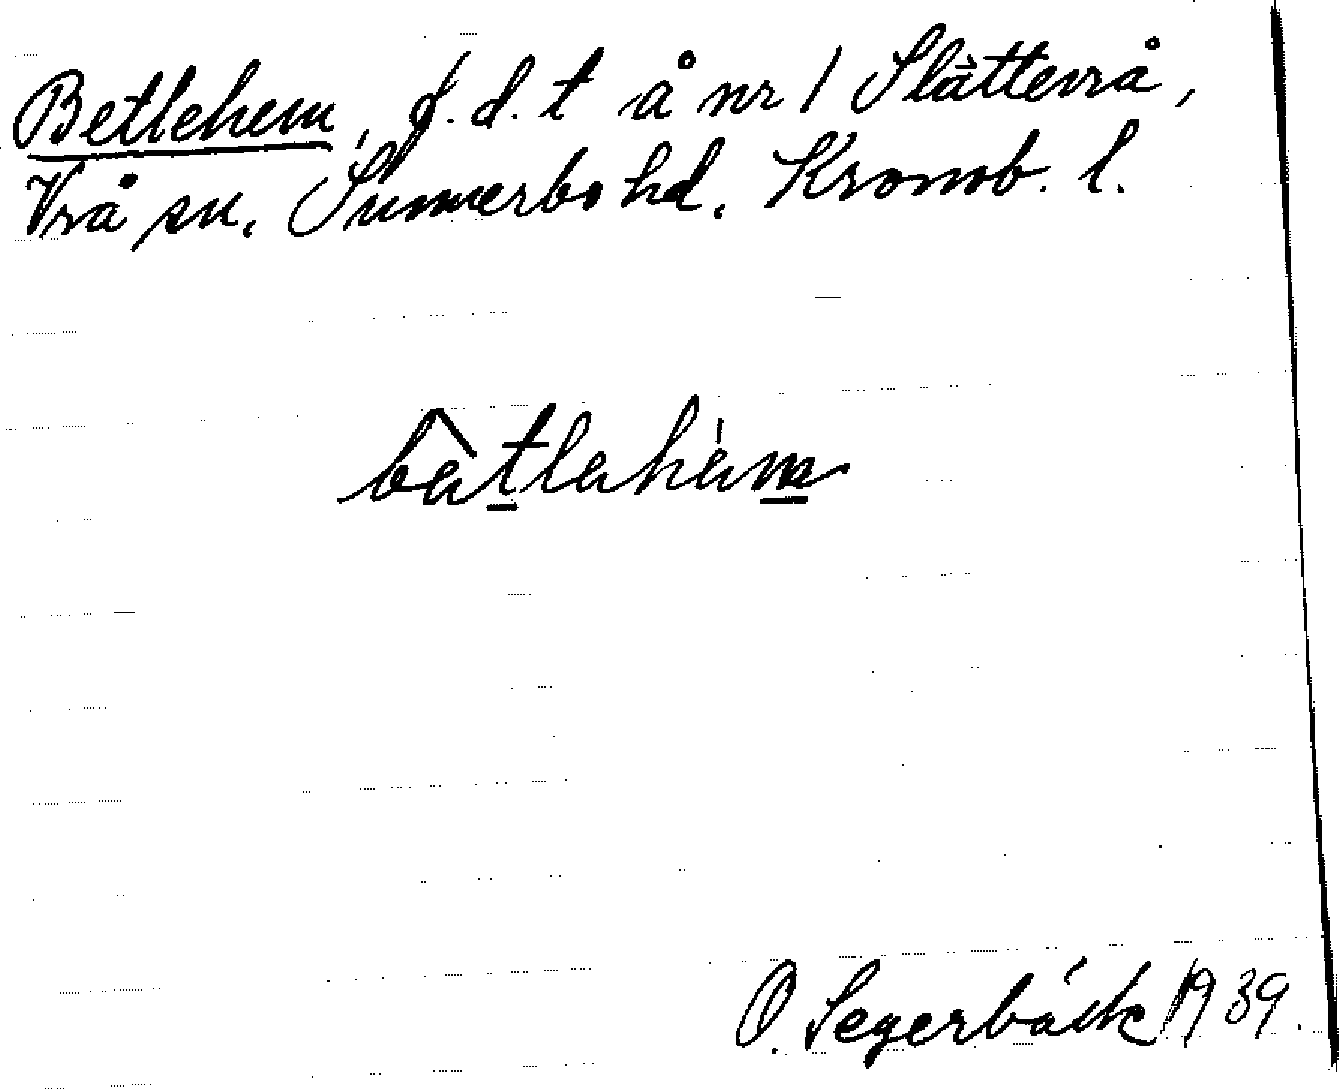 Betlehem, f.d.t å nr 1 Slättevrå,
Vrå sn. Sunnerbo hd. Kronob. l.
bätlahäm
O. Segerbäck 1939.